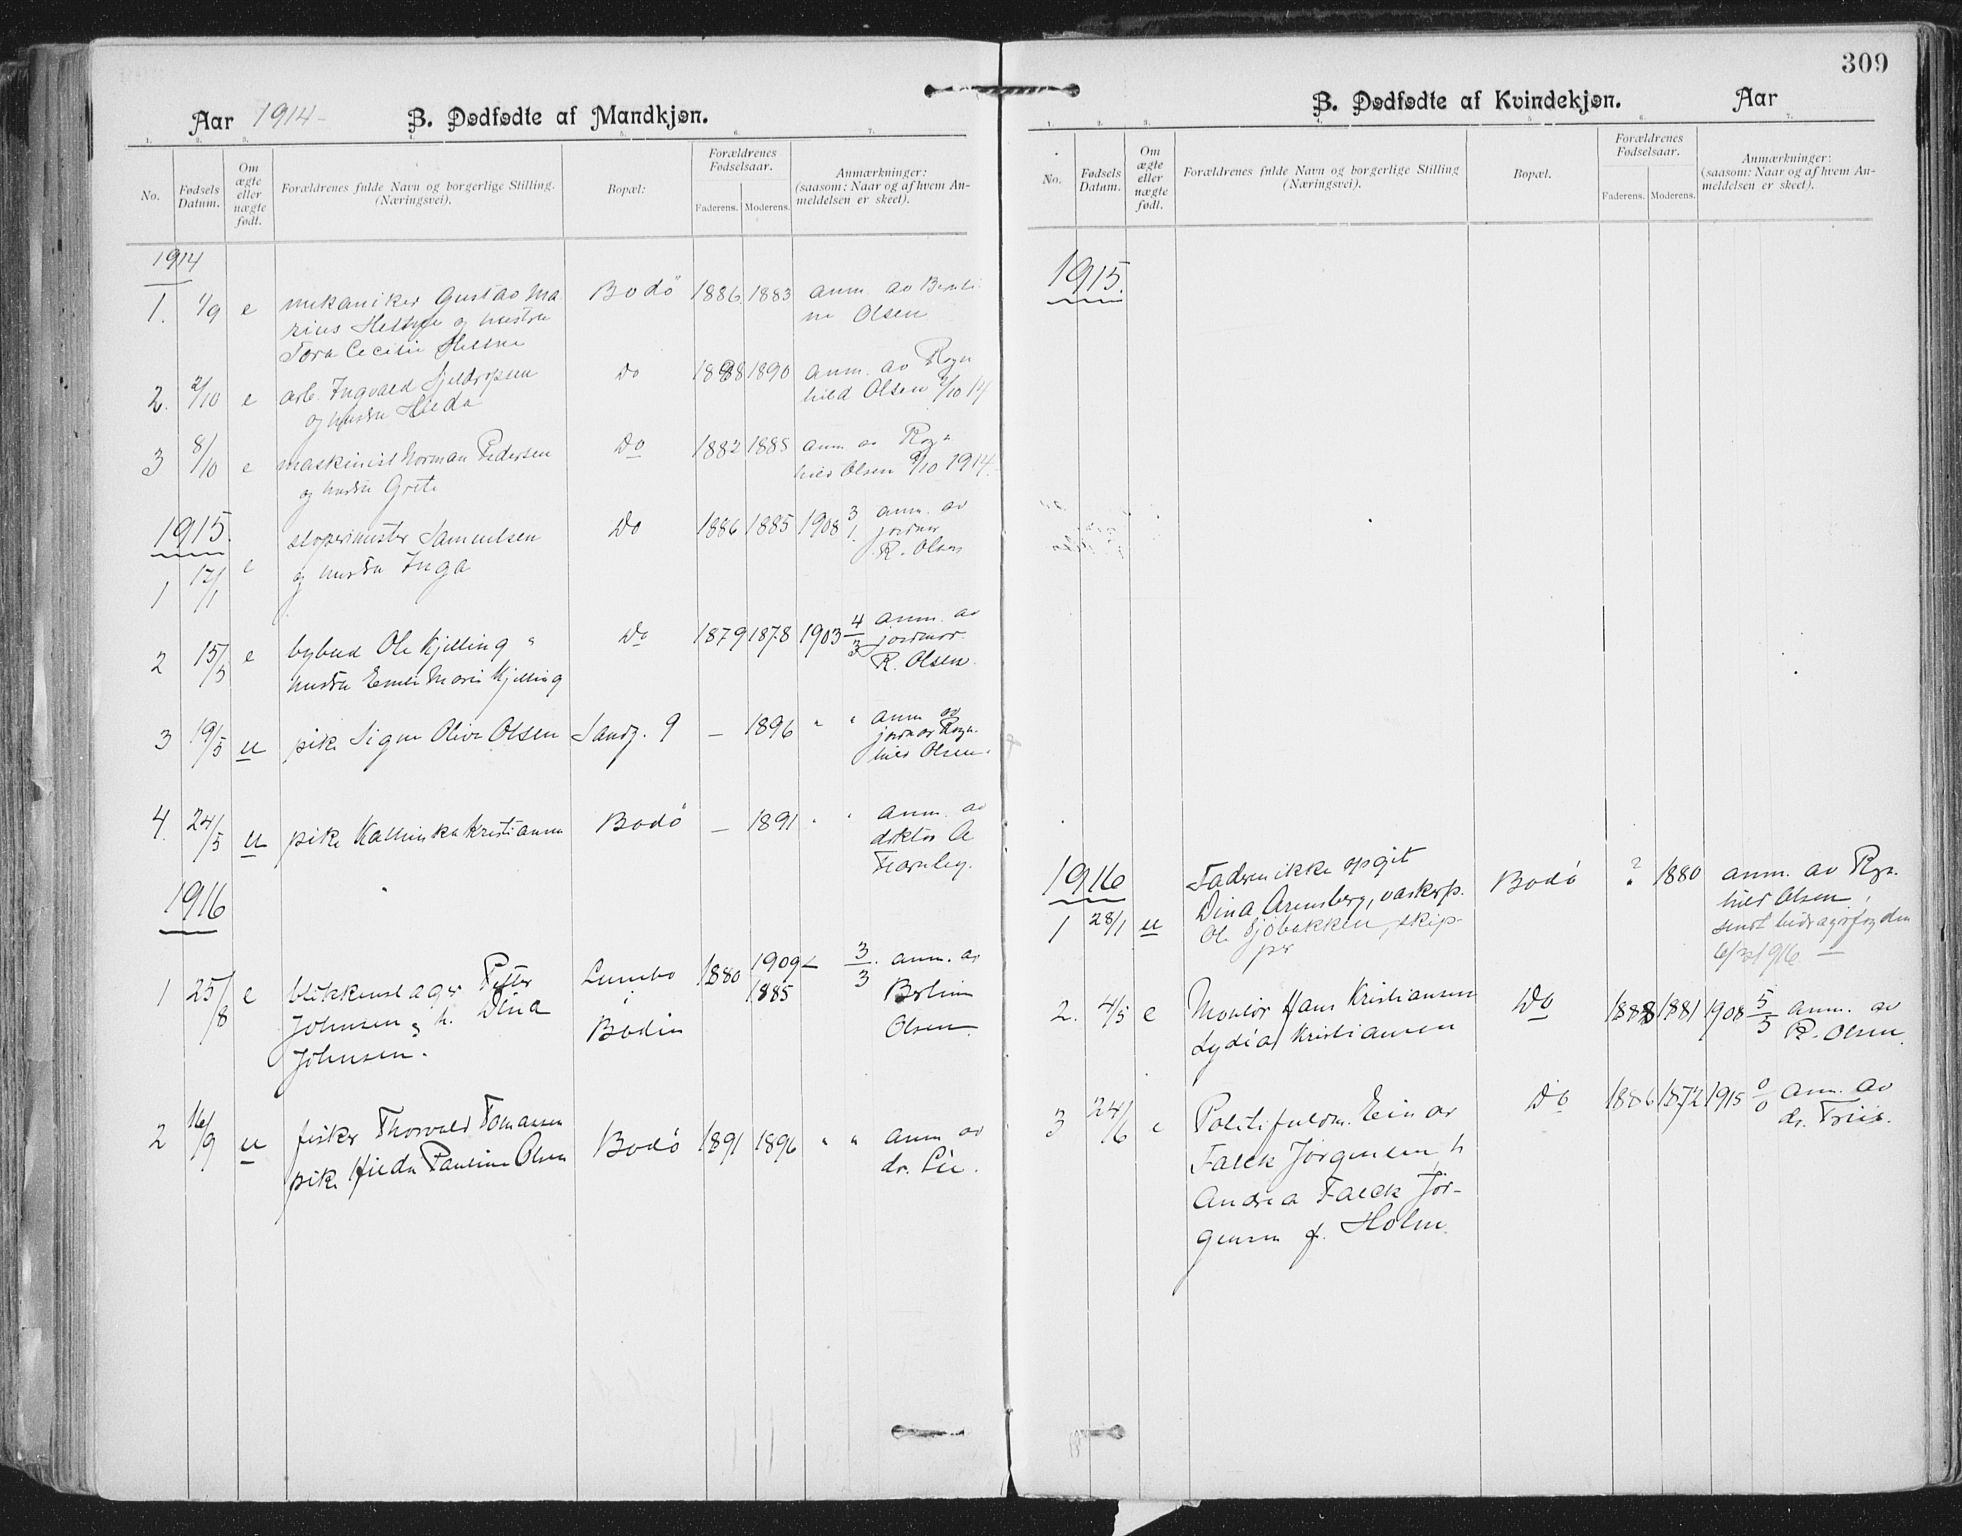 Aar 1914
B. Dødfødte af Mandkjøn.
1. 2. 3. 4. 5. 6. 7.
No.
Fødsels Datum.
Om ægte eller uægte født.
Forældrenes fulde Navn og borgerlige Stilling.
(Næringsvei).
Bopæl:
Forældrenes Fødselsaar.
Faderens. Moderens.
Anmærkninger:
(saasom: Naar og af hvem An-
meldelsen er skeet).
1914
1. 1/9 e mekaniker Gustav Ma Bodö 1886 1883 anm. av
rius og hustru ne Olsen
Tora Cecilie
2. 2/10 e arb. Ingvald Do 1890 anm. av Ragn
og hustru Hilda hild Olsen 2/10 14
3 8/10 e maskinist Norman Pedersen Do 1882 1885 anm. av Ragn
og hustru Grete hild Olsen 9/10 1914
1915.
1 17/1 e Samuelsen Do 1886 1885 1908 3/1. anm. av
og hustru Inga jordmor
R. Olsen
2 15/3 e bybud Ole Kjelling Do 1879 1878 1903 4/3 anm. av
hustru Marie Kjelling jordmor
R. Olsen
3 19/5 u pike Signe Olive Olsen Sandg. 9 – 1896 " " anm av
jordmor Ragn.
hild Olsen.
4. 24/5 u pike Kristiansen Bodö – 1891 " " anm. av
doktor A
1916
1 25/8 e blikkenslager Petter 1880 1909 3/3. anm. av
Johnsen og h. Dina i 1885
Johnsen. Bodin Olsen
2 16/9 u fisker Thorvald Tomassen Bodö 1891 1896 " " anm av
pike Hilda Pauline Olsen dr. Lie.
309
B. Dødfødte af Kvindekjøn.
Aar
1. 2. 3. 4. 5. 6. 7.
No.
Fødsels Datum.
Om ægte eller uægte født.
Forældrenes fulde Navn og borgerlige Stilling
(Næringsvei).
Bopæl.
Forældrenes Fødselsaar.
Faderens. Moderens.
Anmærkninger:
(saasom: Naar og af hvem An-
meldelsen er skeet).
1915.
1916
Faderen ikke opgit Bodö ? 1880 anm. av Ragn.
1 28/1 u Dina Arensberg, vaskerp. hild Olsen
Ole Sjöbakken, skip- sendt bidragsfogden
per
2. 4/5 e Montör Hans Kristiansen Do 1888 1881 1908 5/5 anm. av
Lydia Kristiansen R. Olsen
3 24/6 e Politifuldm. Einar Do 1886 1872 1915 0/0 anm. av
Falck Jörgensen h dr. Friis.
Andrea Falck Jör-
gensen f. Holm